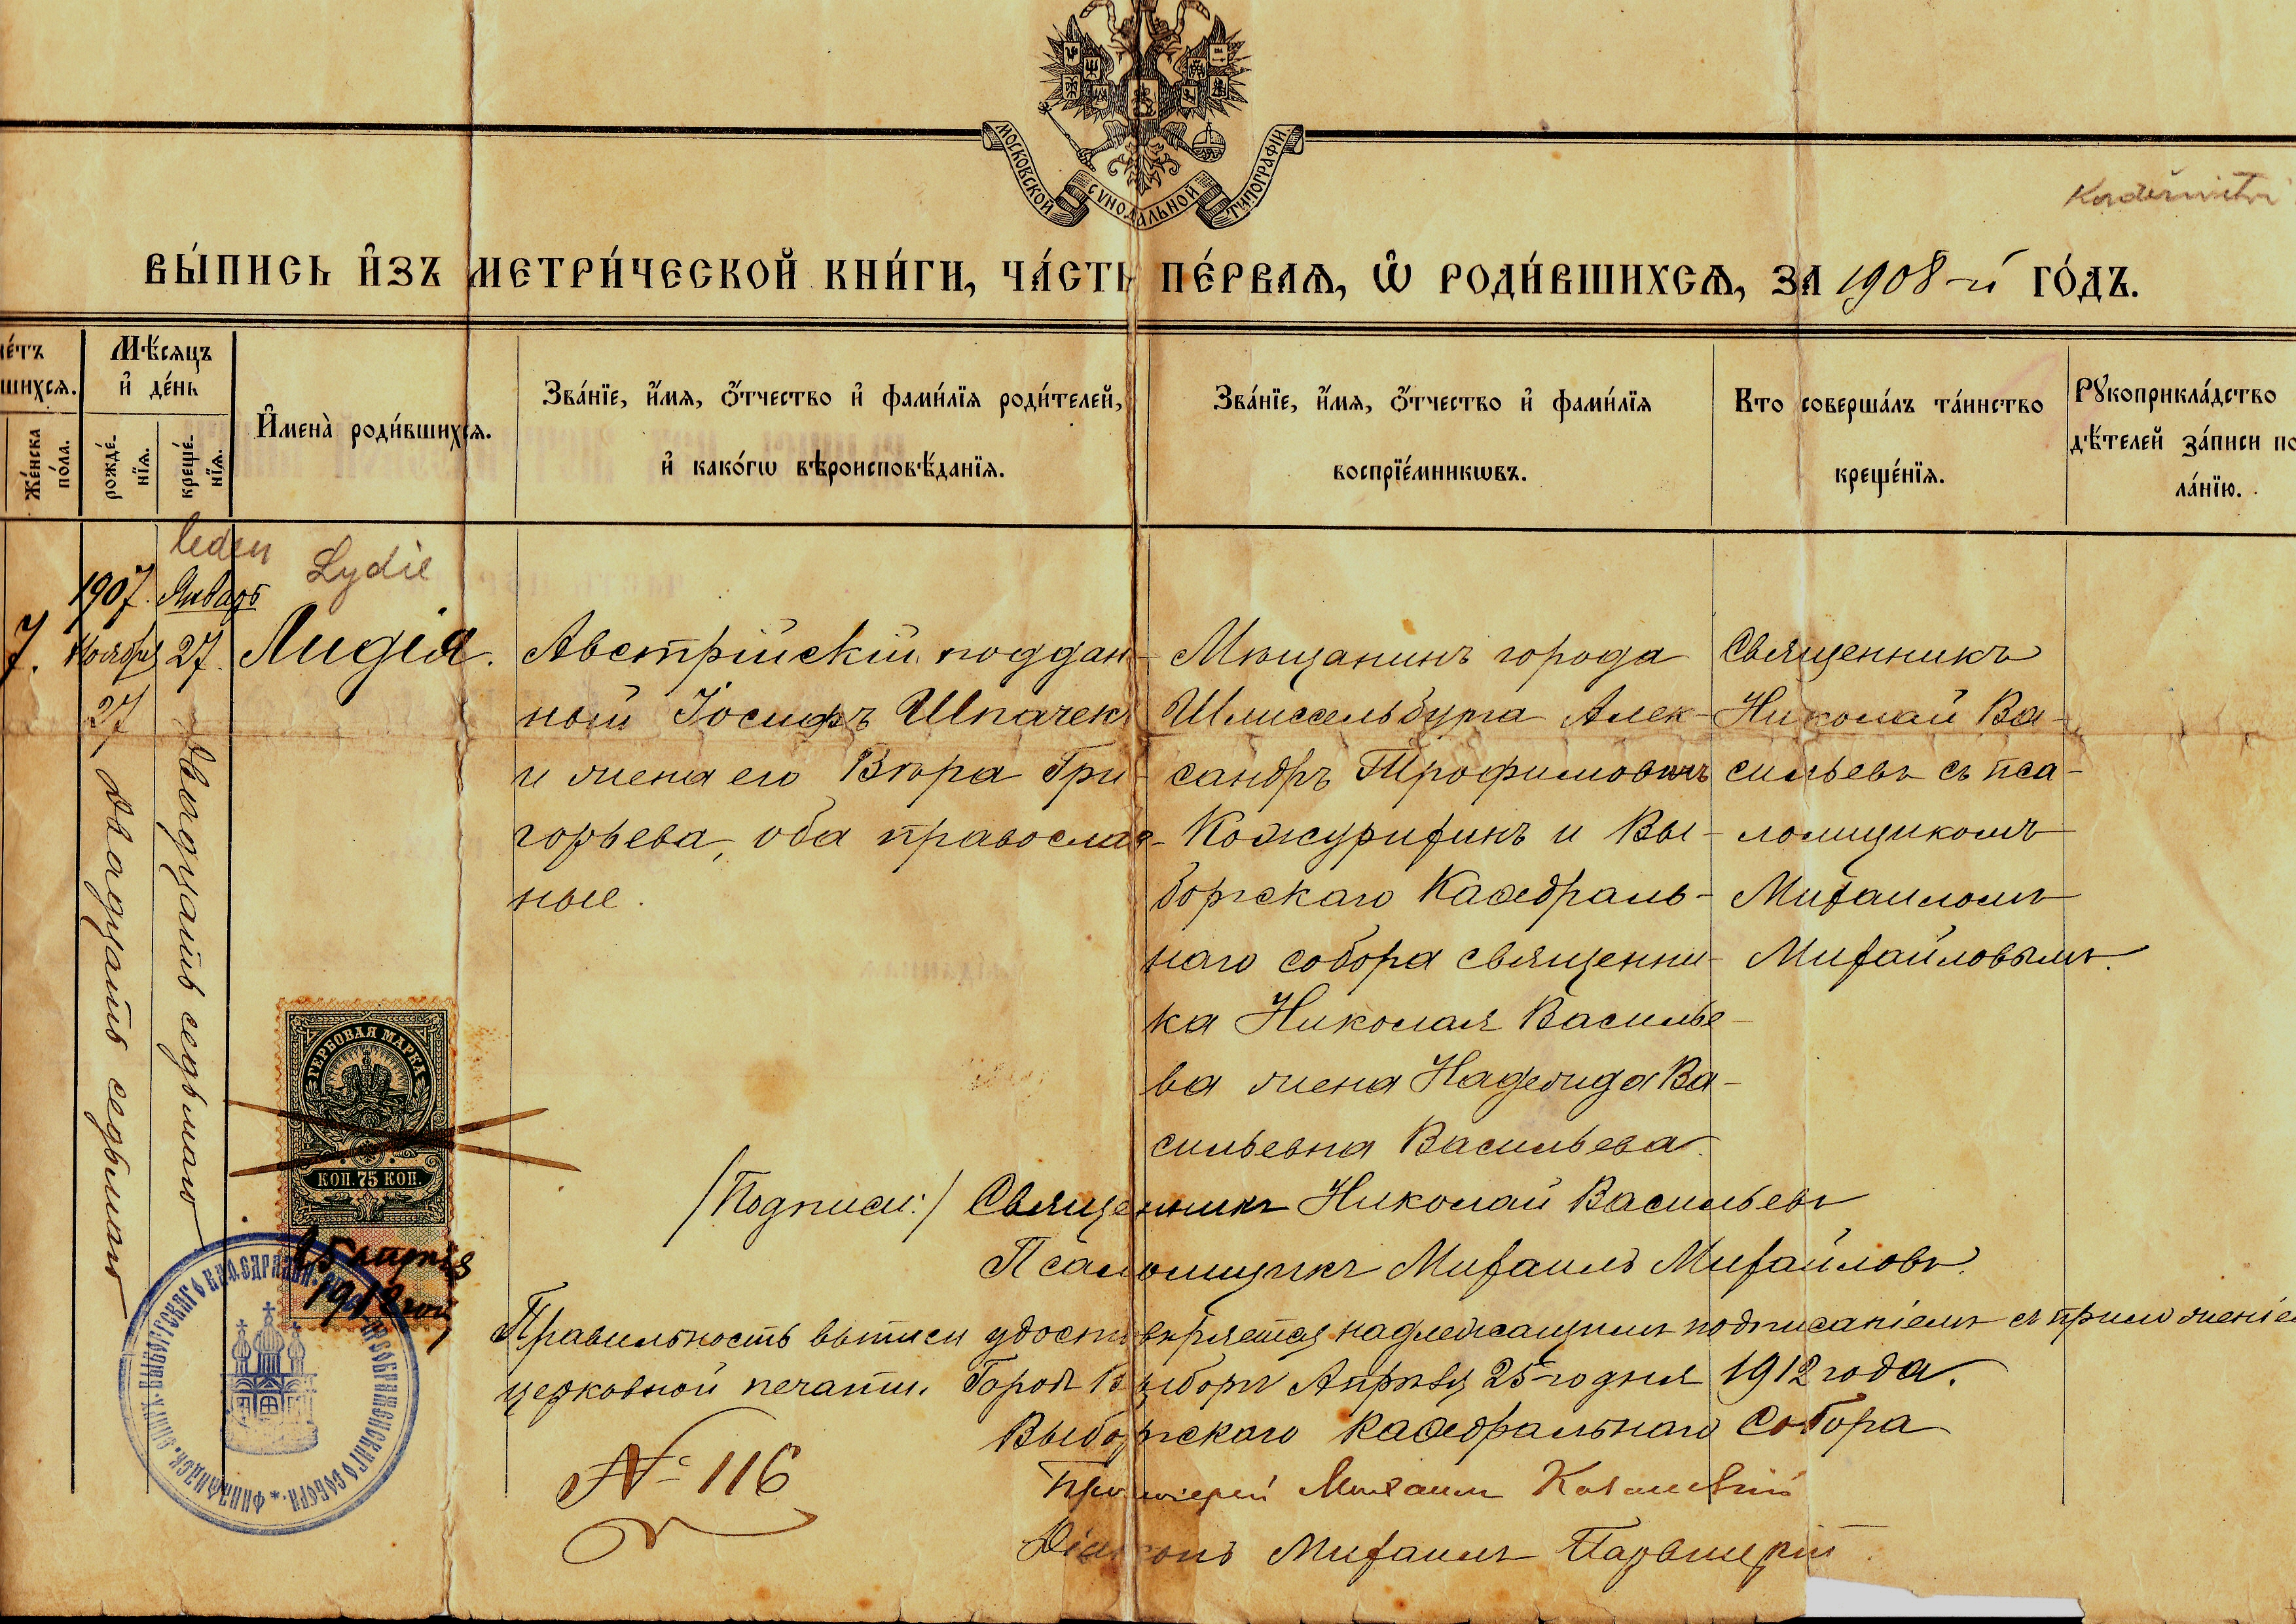 МОСКОВСКОЙ СѴНОДАЛЬНОЙ ТИПОГРАФІИ
ВЫ́ПИСЬ И҆ЗЪ МЕТРИ́ЧЕСКОЙ КНИ́ГИ, ЧА́СТЬ ПЕ́РВАѦ, Ѽ РОДИ́ВШИХСѦ, ЗА 1908-й ГО́ДЪ.
шихсѧ.
Же́нска по́ла.
Мѣ́сѧцъ и҆ де́нь
рожде́нїѧ.
креще́нїѧ.
И҆мена̀ роди́вшихсѧ.
Зва́нїе, и҆́мѧ, ѻ҆́тчество и҆ фами́лїѧ роди́телей,
и҆ како́гѡ вѣроисповѣ́данїѧ.
Зва́нїе, и҆́мѧ, ѻ҆́тчество и҆ фами́лїѧ
воспрїе́мникѡвъ.
Кто соверша́лъ та́инство
креще́нїѧ.
Рꙋкоприкла́дство
дѣ́телей за́писи по
ла́нїю.
leden
Lydie
7.
1907. Ноября 27
двадцать седьмаго
Январь 27.
двадцать седьмаго
Лидія.
Австрійскій поддан-
ный Іосифъ Шпачекъ
и жена его Вѣра Гри-
горьева, оба православ-
ные.
Мѣщанинъ города
Шлиссельбурга Алек-
сандръ Трофимовичъ
Кожурихинъ и Вы-
боргскаго Каѳедраль-
наго собора священни-
ка Николая Василье-
ва жена Надежда Ва-
сильевна Васильева.
Священникъ
Николай Ва-
сильевъ съ пса-
ломщикомъ
Михаиломъ
Михайловымъ.
ГЕРБОВАЯ МАРКА
КОП. 75 КОП.
25 апрѣля
1912 года
/Подписи:/ Священникъ Николай Васильевъ
Псаломщикъ Михаилъ Михайловъ.
Правильность выписи удостовѣряется надлежащимъ подписаніемъ съ приложеніем
церковной печати. Городъ Выборгъ Апрѣля 25-го дня 1912 года.
Выборгскаго Каѳедральнаго Собора
№ 116
Протоіерей Михаилъ Казанскій
Діаконъ Михаилъ